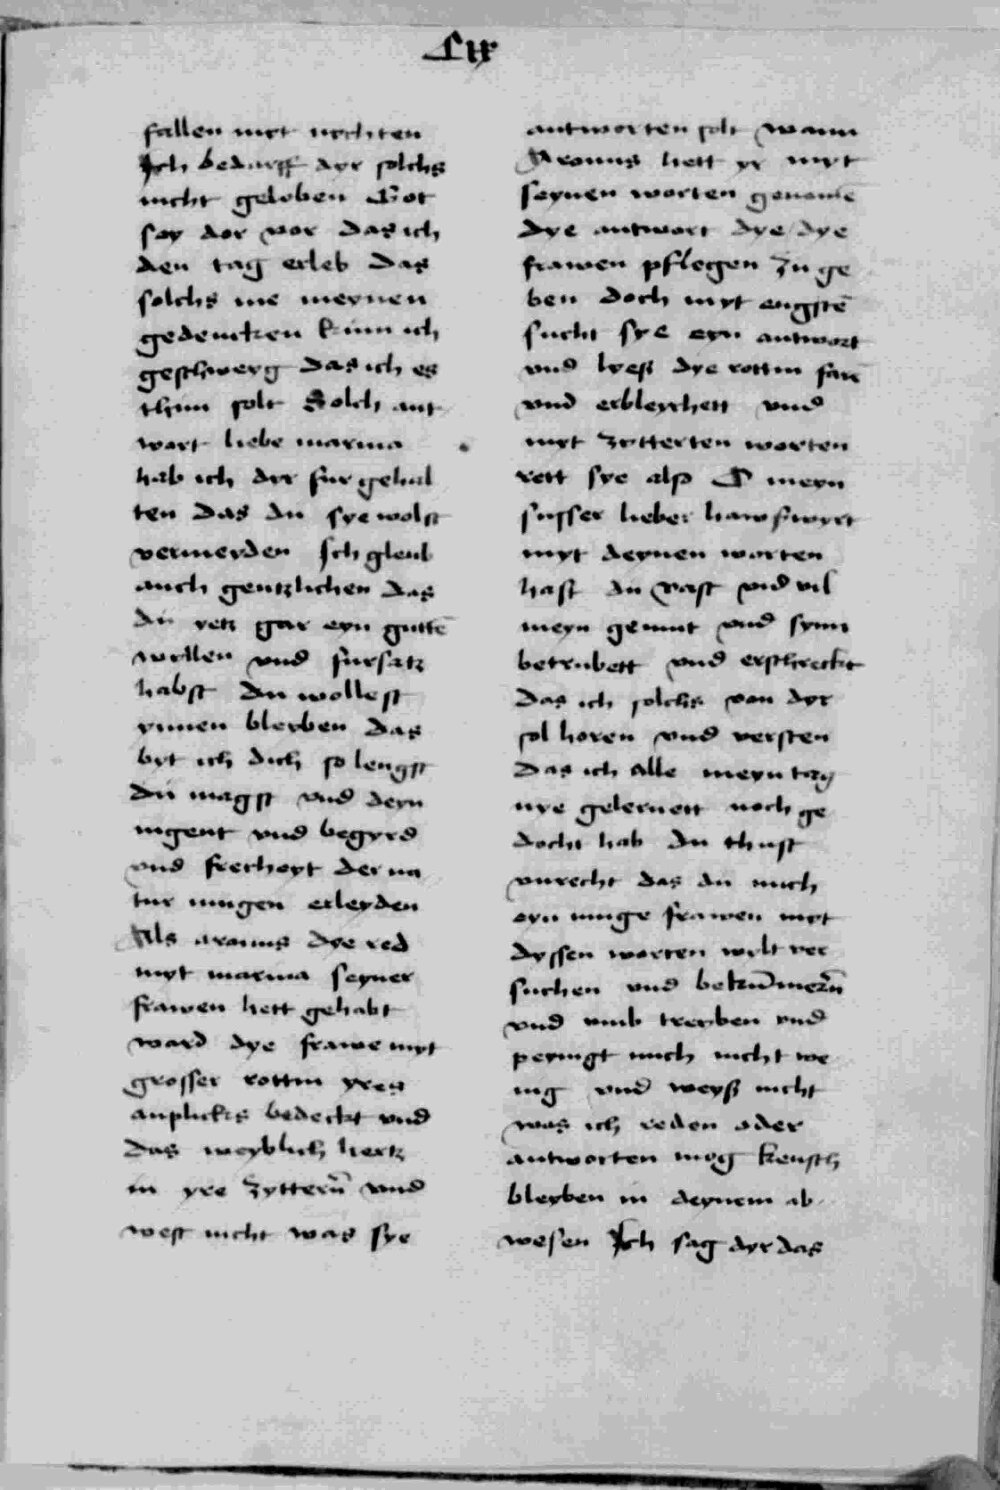 Clx
fallen myt nechten
Ich bedarff dyr solchs
nicht geloben Got
sey dor vor das ich
den tag erleb das
solchs nie meynen
gedencken kum ich
geschweyg das ich es
thun solt Solch ant
wort liebe marina
hab ich dyr fur gehal
ten das du sye wolst
vermeyden Ich gleub
auch gentzlichen das
du yetz gar eyn guttē
wyllen vnd fursatz
habst du wollest
ynnen bleyben das
byt ich dich so lengst
du magst vnd deyn
iugent vnd begyrd
vnd frecheyt der na
tur mugen erleyden
Als aronus dye red
myt marina seyner
frawen hett gehabt
ward dye frawe myt
grosser rottin yres
anplicks bedeckt vnd
das weyblich hertz
in yre zytterñ vnd
west nicht was sye
antworten solt wann
Aronus hett yr myt
seynen worten genomē
dye antwort dye dye
frawen pflegen zu ge
ben doch myt engstē
sucht sye eyn antwort
vnd lyeß dye rottin farē
vnd erbleychett vnd
myt zytterten worten
rett sye also O meyn
susser lieber hawswyrt
myt deynen worten
hast du vast vnd vil
meyn gemut vnd synn
betrubett vnd erschreckt
das ich solchs von dyr
sol horen vnd versten
das ich alle meyn tag
nye gelernett noch ge
docht hab du thust
vnrecht das du mich
eyn iunge frawen myt
dyssen worten wylt ver
suchen vnd bekūmerñ
vnd vmb treyben vnd
peyngt mich nicht we
nig vnd weyß nicht
was ich reden oder
antworten mog keusch
bleyben in deynem ab
wesen Ich sag dyr das